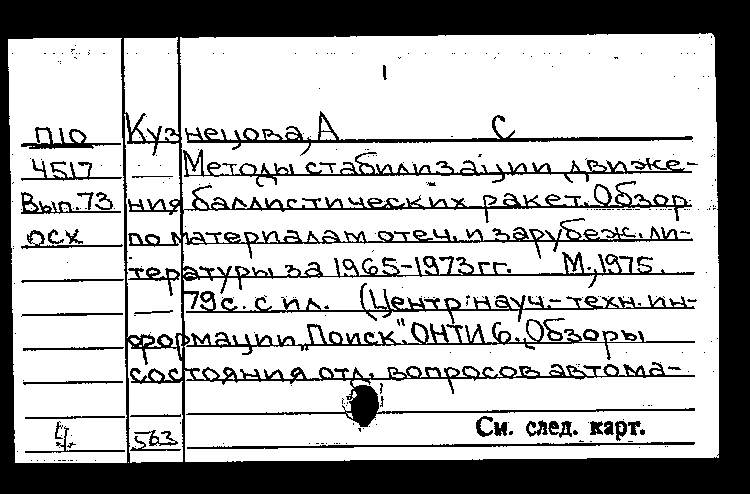 1
П10 Кузнецова, А С
4517 — Методы стабилизации движе-
Вып.73 ния баллистических ракет. Обзор
ОСХ по материалам отеч. и зарубеж. ли-
тературы за 1965-1973 гг. М., 1975.
— 79 с. с ил. (Центр науч.-техн. ин-
формации "Поиск". ОНТИ 6. Обзоры
состояния отд. вопросов автома-
4. 563 См. след. карт.